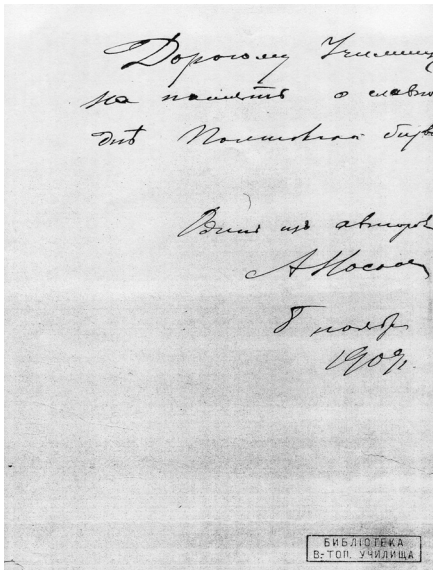 Дорогому Училищ
на память о славно
днѣ Полтавской битв
изъ авторов
АНосов
8 ноябр
1909г.
БИБЛІОТЕКА
В.-ТОП. УЧИЛИЩА